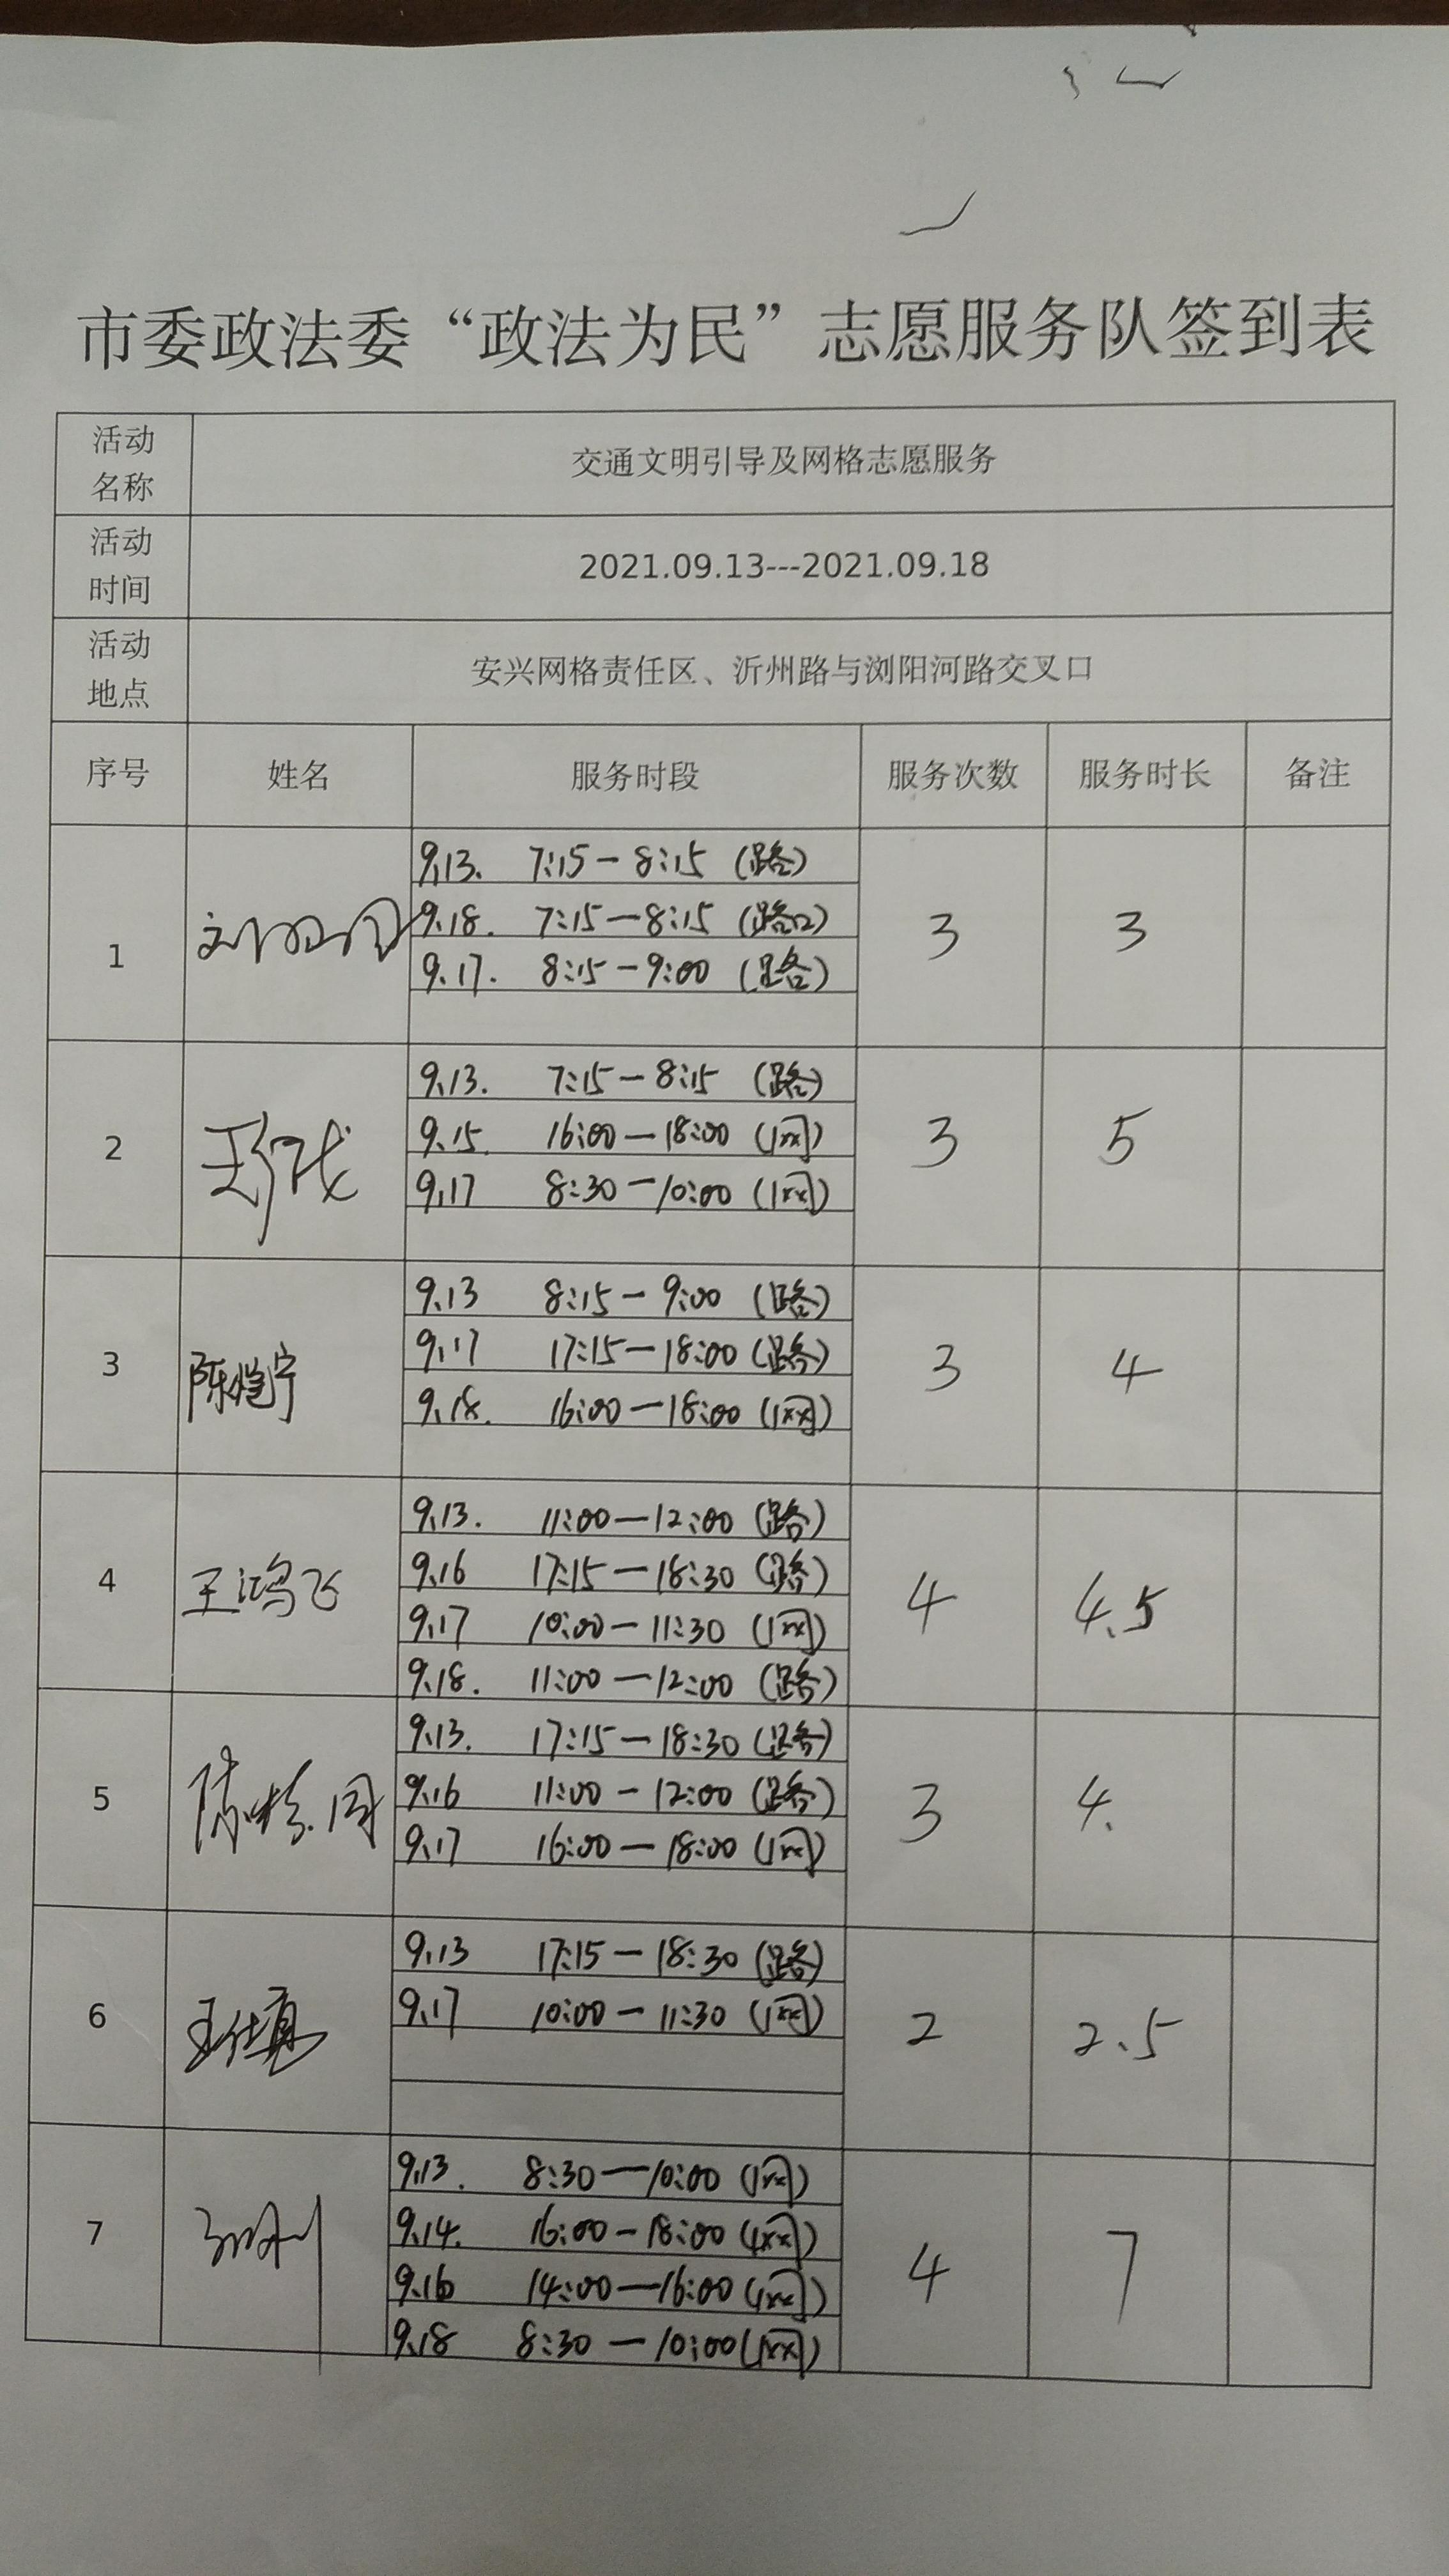 市委政法委“政法为民”志愿服务队签到表
活动名称 交通文明引导及网格志愿服务
活动时间 2021.09.13---2021.09.18
活动地点 安兴网格责任区、沂州路与浏阳河路交叉口
序号 姓名 服务时段 服务次数 服务时长 备注
1 3 3
9.13. 7:15-8:15 (路)
9.18. 7:15-8:15 (路口)
9.17. 8:15-9:00 (路)
2 3 5
9.13. 7:15-8:15 (路)
9.15. 16:00-18:00 (网)
9.17 8:30-10:00 (网)
3 陈恺宁 3 4
9.13 8:15-9:00 (路)
9.17 17:15-18:00 (路)
9.18. 16:00-18:00 (网)
4 王鸿飞 4 4.5
9.13. 11:00-12:00 (路)
9.16 17:15-18:30 (路)
9.17 10:00-11:30 (网)
9.18. 11:00-12:00 (路)
5 3 4.
9.13. 17:15-18:30 (路)
9.16 11:00-12:00 (路)
9.17 16:00-18:00 (网)
6 2 2.5
9.13 17:15-18:30 (路)
9.17 10:00-11:30 (网)
7 4 7
9.13. 8:30-10:00 (网)
9.14. 16:00-18:00 (网)
9.16 14:00-16:00 (网)
9.18 8:30-10:00 (网)